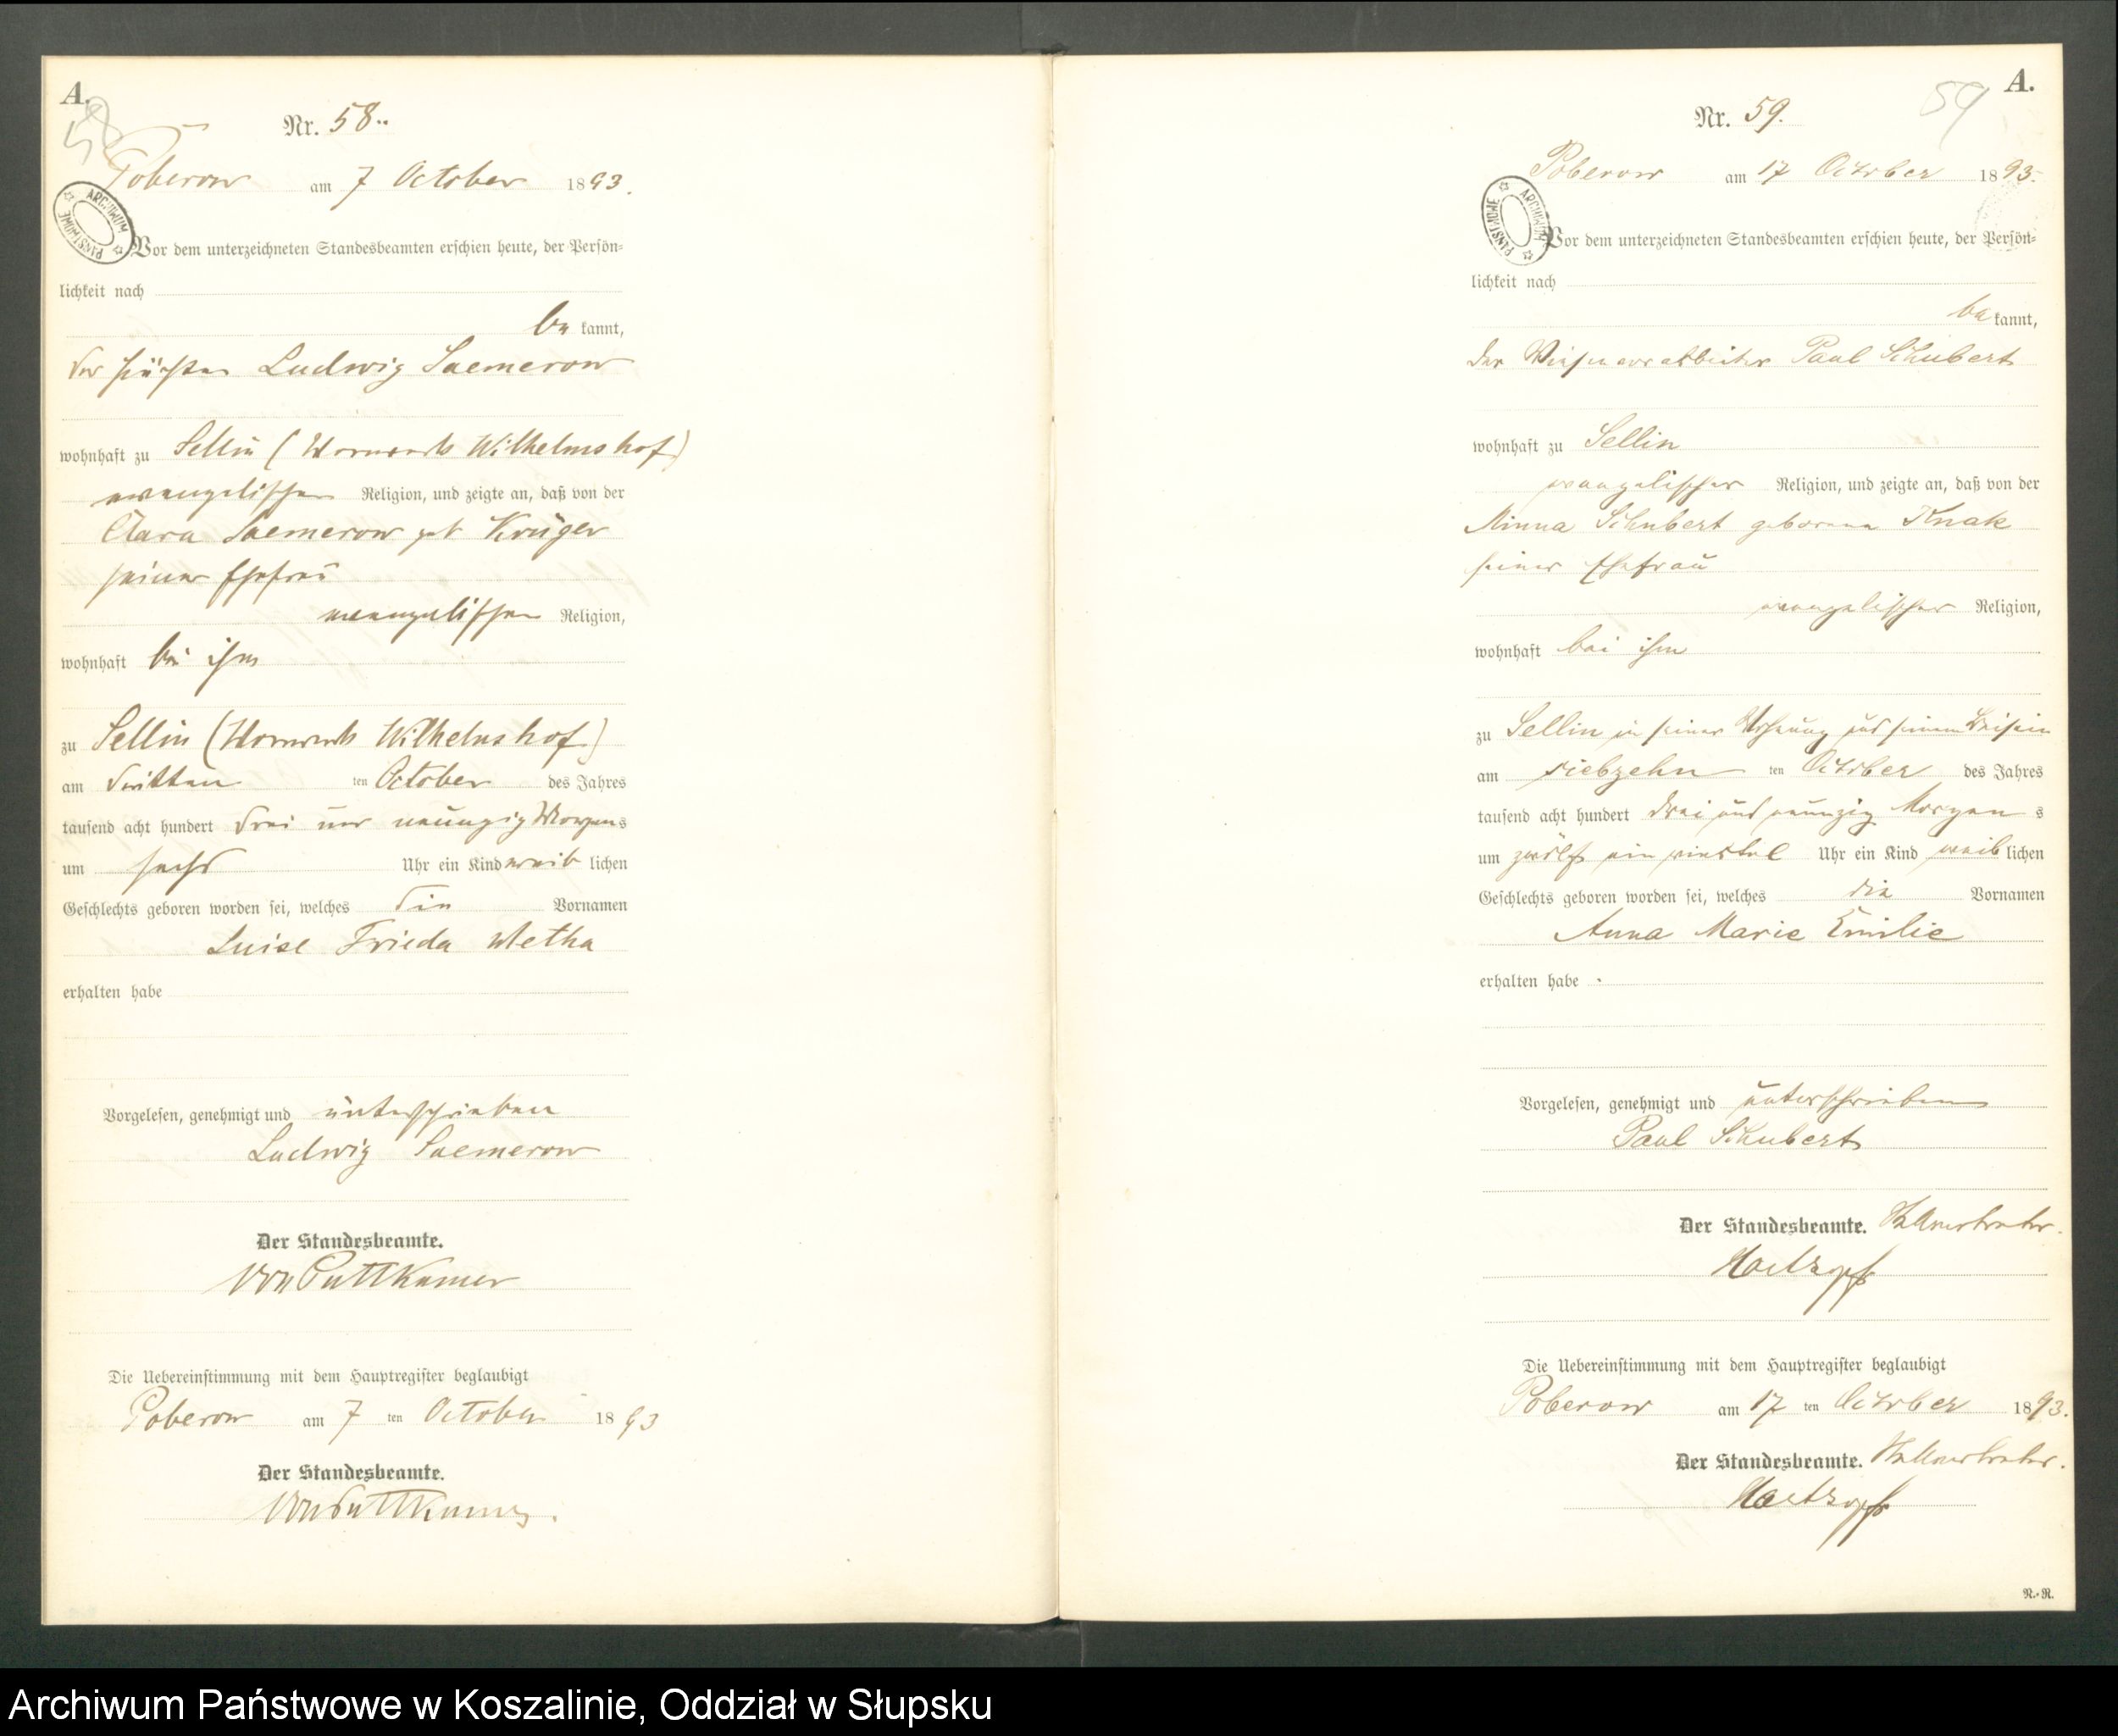 A.
58
Nr. 58..
Poberow am 7 October 1893.
ARCHIWUM PAŃSTWOWE
Vor dem unterzeichneten Standesbeamten erschien heute, der Persön-
lichkeit nach
be kannt,
der Ludwig Saemerow
wohnhaft zu Sellin (Vorwerk Wilhelmshof)
evangelischer Religion, und zeigte an, daß von der
Clara Saemerow geb Krüger
seiner Ehefrau
evangelischer Religion,
wohnhaft bei ihm
zu Sellin (Vorwerk Wilhelmshof)
am dritten ten October des Jahres
tausend acht hundert drei und neunzig Morgens
um sechs Uhr ein Kind weib lichen
Geschlechts geboren worden sei, welches die Vornamen
Luise Frieda Metha
erhalten habe
Vorgelesen, genehmigt und unterschrieben
Ludwig Saemerow
Der Standesbeamte.
von Puttkamer
Die Uebereinstimmung mit dem Hauptregister beglaubigt
Poberow am 7 ten October 1893
Der Standesbeamte.
von Puttkamer.
A.
59
Nr. 59.
Poberow am 17 October 1893.
ARCHIWUM PAŃSTWOWE
Vor dem unterzeichneten Standesbeamten erschien heute, der Persön-
lichkeit nach
be kannt,
der Paul Schubert
wohnhaft zu Sellin
evangelischer Religion, und zeigte an, daß von der
Minna Schubert geborene Knak
seiner Ehefrau
evangelischer Religion,
wohnhaft bei ihm
zu Sellin in seiner Wohnung und seinem Beisein
am siebzehn ten October des Jahres
tausend acht hundert drei und neunzig Morgen s
um zwölf ein viertel Uhr ein Kind weib lichen
Geschlechts geboren worden sei, welches die Vornamen
Anna Marie Emilie
erhalten habe
Vorgelesen, genehmigt und unterschrieben
Paul Schubert
Der Standesbeamte.
Die Uebereinstimmung mit dem Hauptregister beglaubigt
Poberow am 17 ten October 1893.
Der Standesbeamte.
R.-R.
Archiwum Państwowe w Koszalinie, Oddział w Słupsku